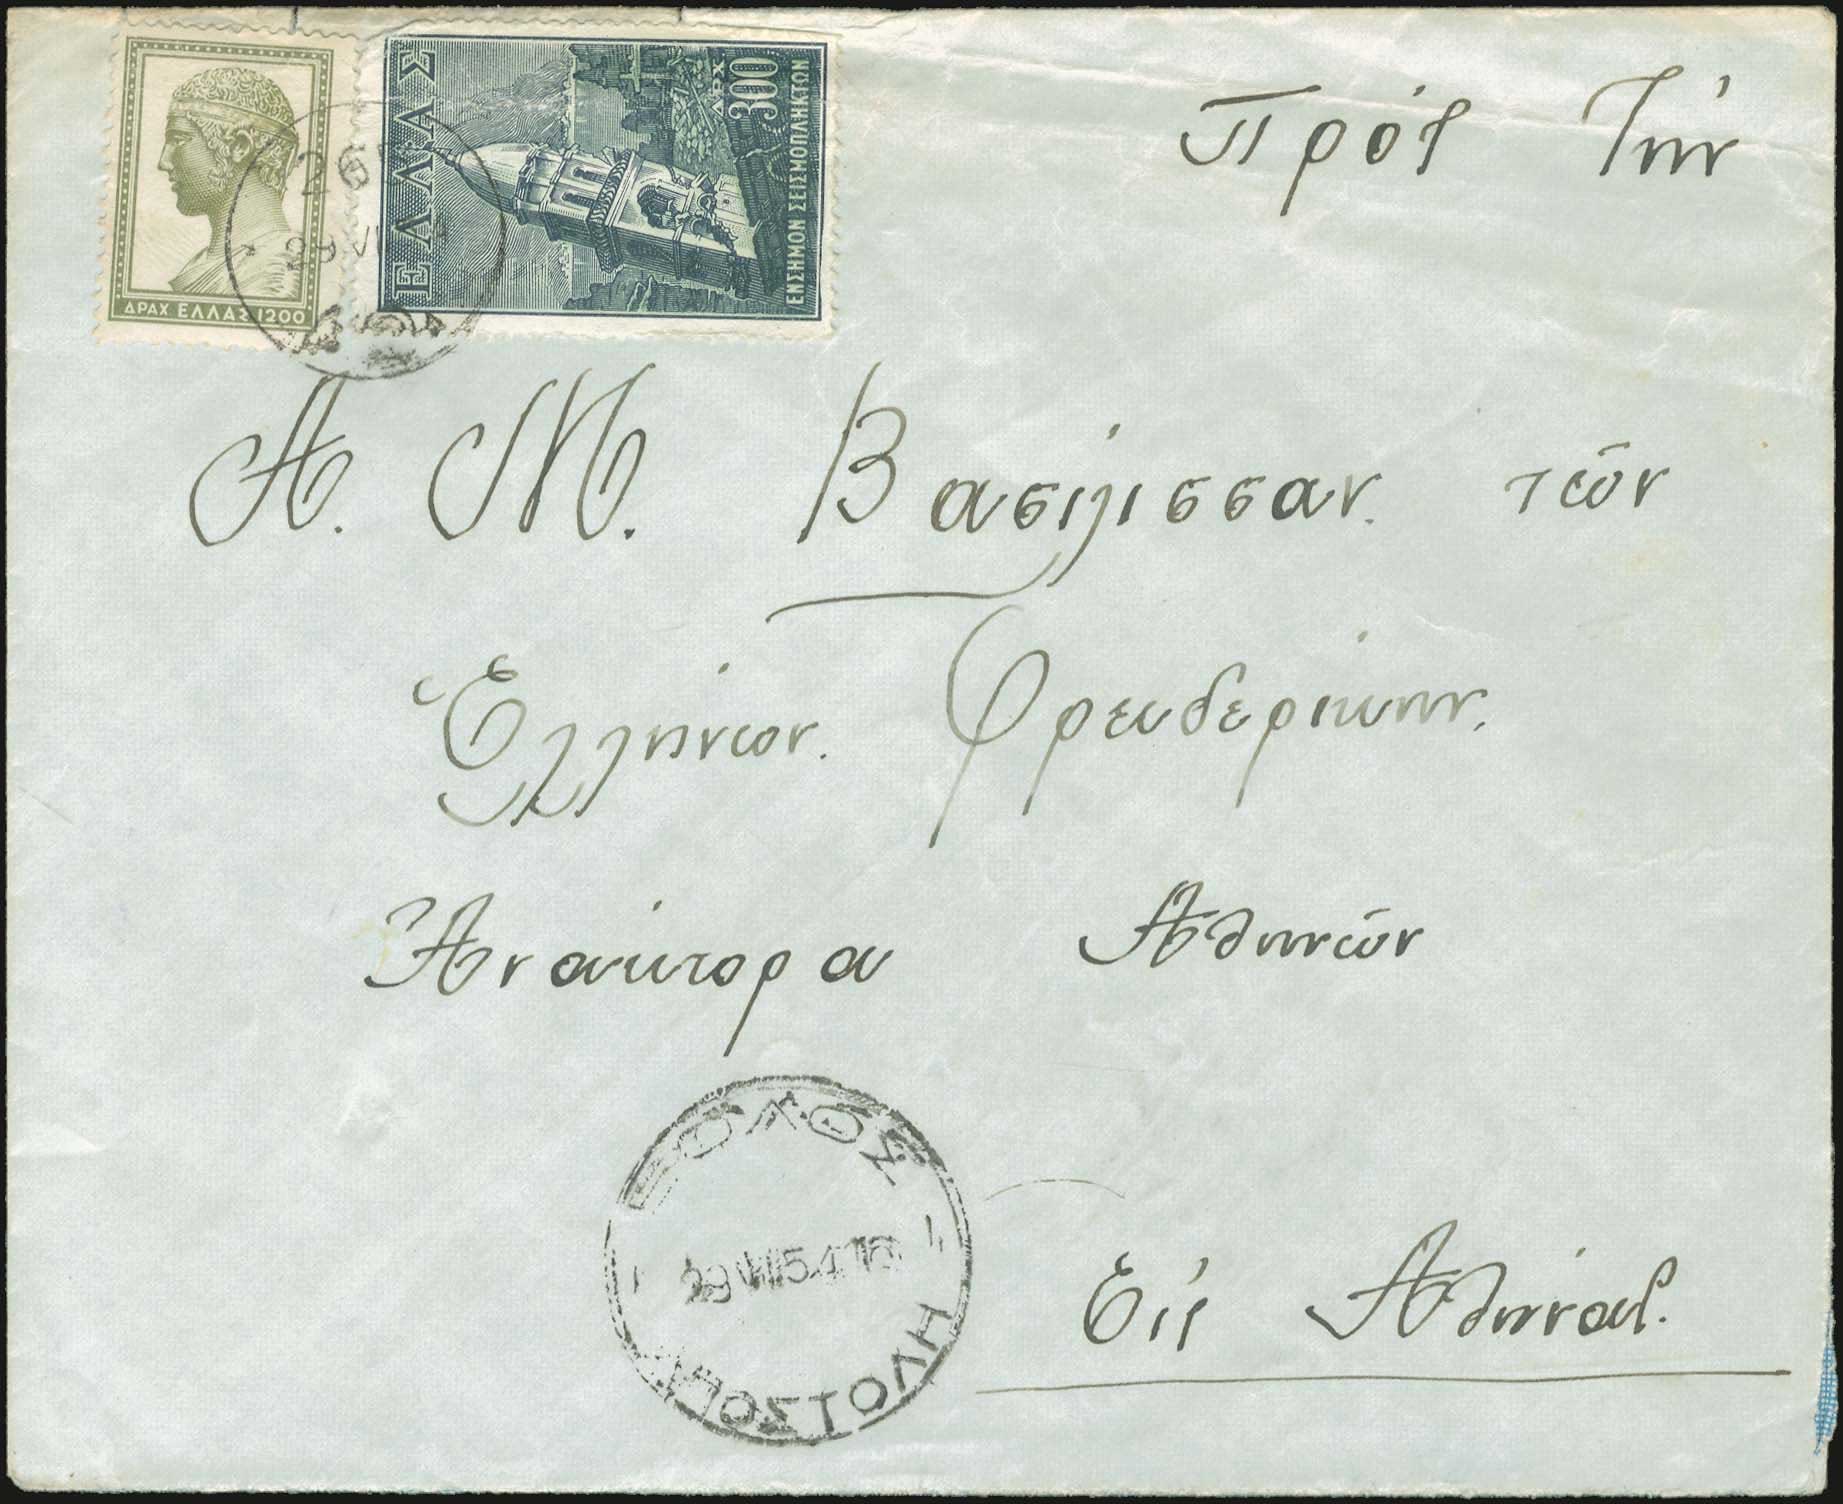 ΔΡΑΧ ΕΛΛΑΣ 1200
ΕΛΛΑΣ
ΔΡΧ
300
ΕΝΣΗΜΟΝ ΣΕΙΣΜΟΠΛΗΚΤΩΝ
26
29 VI
Πρός Τήν
Α. Μ. Βασίλισσαν. τῶν
Ἑλλήνων. Φρειδερίκην.
Ἀνάκτορα Ἀθηνῶν
ΒΟΛΟΣ
29 VIII 54 16
ΑΠΟΣΤΟΛΗ
Εἰς Ἀθήνας.